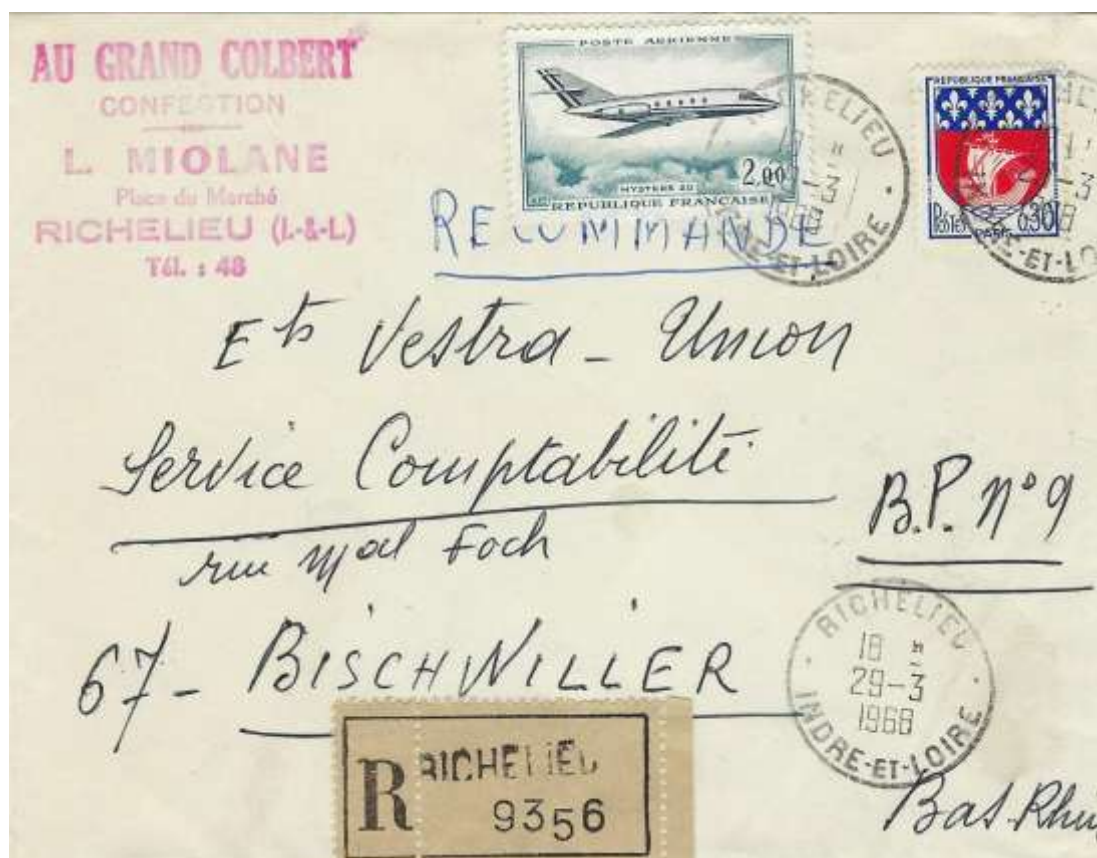 AU GRAND COLBERT
CONFECTION
L. MIOLANE
Place du Marché
RICHELIEU (I.-&-L)
Tél. : 48
POSTE AERIENNE
2,00
MYSTERE 20
REPUBLIQUE FRANÇAISE
REPUBLIQUE FRANÇAISE
Postes
PARIS
0,30
RECOMMANDE
Ets Vestra - Union
Service Comptabilité
B.P. n° 9
rue Mal Foch
67 - BISCHWILLER
RICHELIEU
18 H
29-3
1968
INDRE-ET-LOIRE
R
RICHELIEU
9356
Bas-Rhin